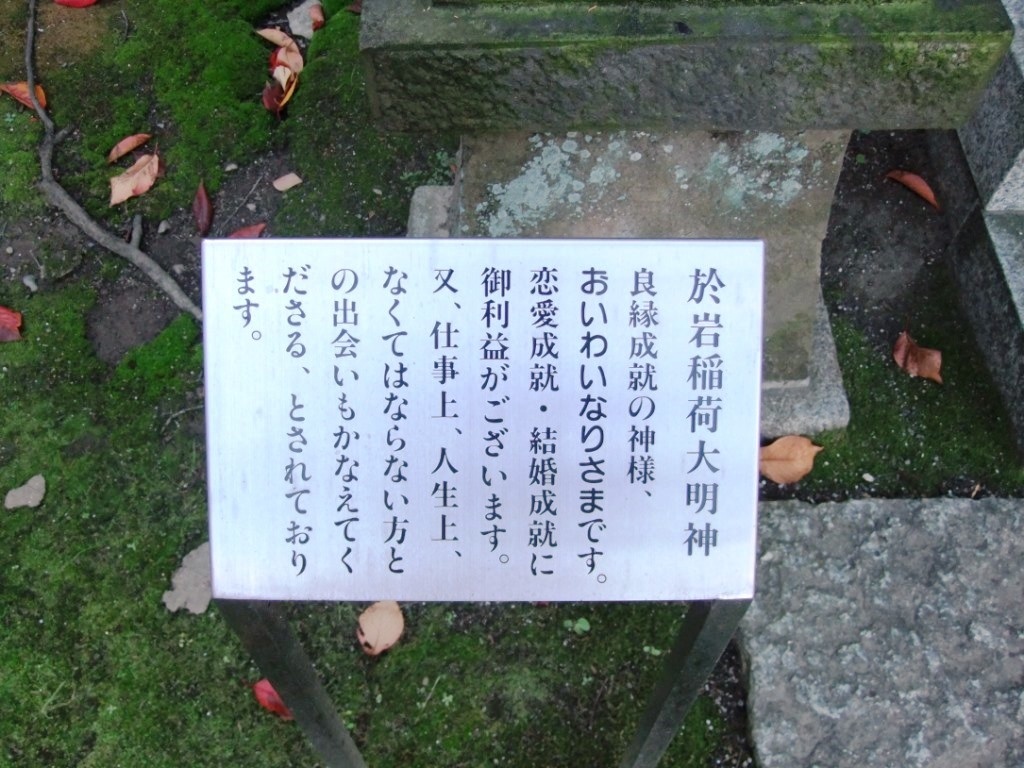 於岩稲荷大明神
良縁成就の神様、
おいわいなりさまです。
恋愛成就・結婚成就に
御利益がございます。
又、仕事上、人生上、
なくてはならない方と
の出会いもかなえてく
ださる、とされており
ます。